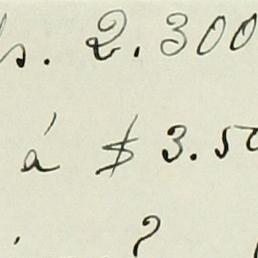 s. 2.300
á $ 3.50
. ?